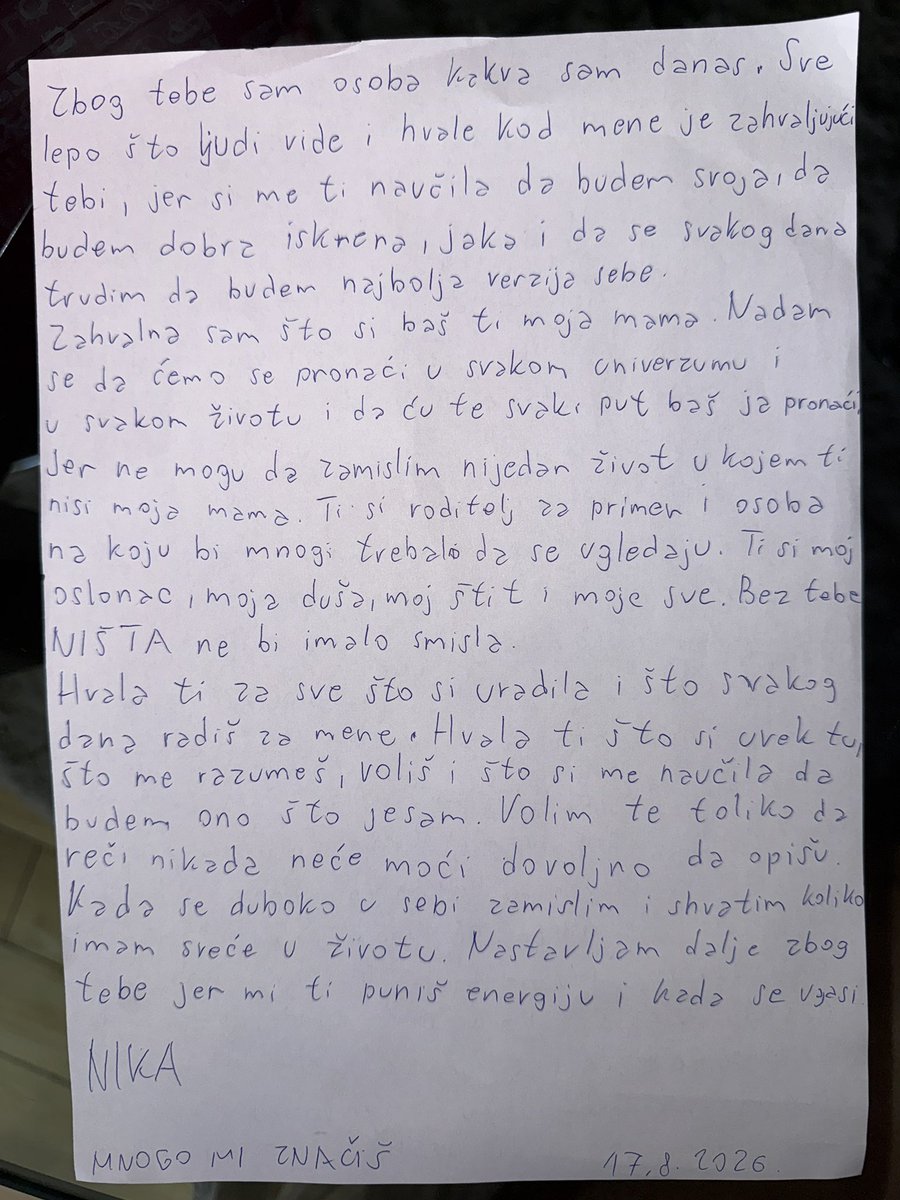 Zbog tebe sam osoba kakva sam danas. Sve
lepo što ljudi vide i hvale kod mene je zahvaljujući
tebi, jer si me ti naučila da budem svoja, da
budem dobra iskrena, jaka i da se svakog dana
trudim da budem najbolja verzija sebe.
Zahvalna sam što si baš ti moja mama. Nadam
se da ćemo se pronaći u svakom univerzumu i
u svakom životu i da ću te svaki put baš ja pronaći,
Jer ne mogu da zamislim nijedan život u kojem ti
nisi moja mama. Ti si roditelj za primer i osoba
na koju bi mnogi trebalo da se ugledaju. Ti si moj
oslonac, moja duša, moj štit i moje sve. Bez tebe
NIŠTA ne bi imalo smisla.
Hvala ti za sve što si uradila i što svakog
dana radiš za mene. Hvala ti što si uvek tu,
što me razumeš, voliš i što si me naučila da
budem ono što jesam. Volim te toliko da
reči nikada neće moći dovoljno da opišu.
Kada se duboko u sebi zamislim i shvatim koliko
imam sreće u životu. Nastavljam dalje zbog
tebe jer mi ti puniš energiju i kada se ugasi
NIKA
MNOGO MI ZNAČIŠ
17.8.2026.